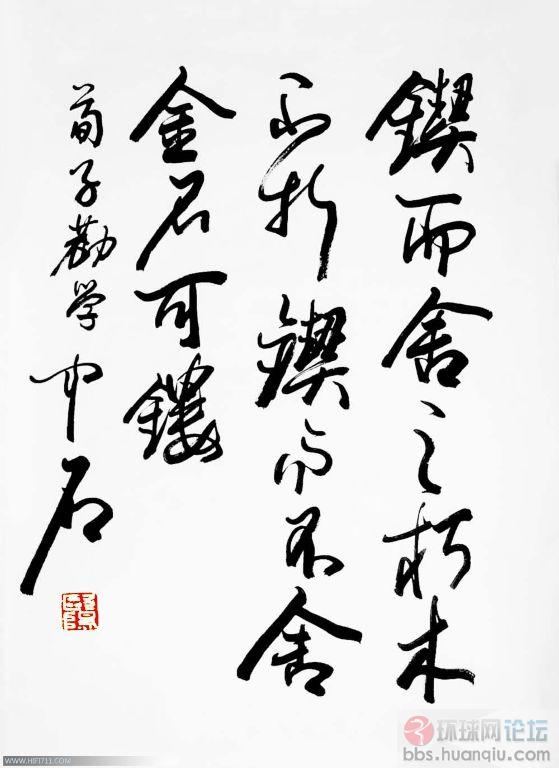 锲而舍之朽木
不折锲而不舍
金石可镂
荀子劝学 中石
环球网论坛
bbs.huanqiu.com
WWW.HIFI711.COM